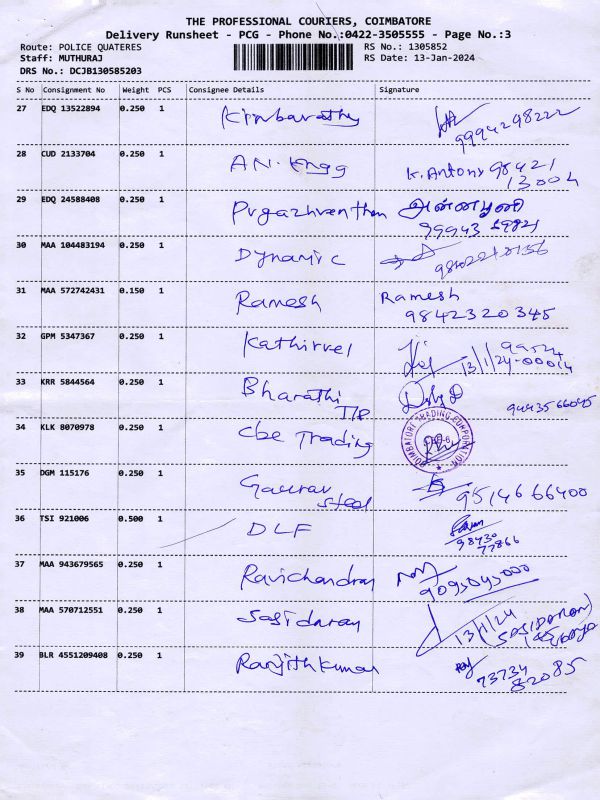 THE PROFESSIONAL COURIERS, COIMBATORE
Delivery Runsheet - PCG - Phone No.:0422-3505555 - Page No.:3
Route: POLICE QUATERES RS No.: 1305852
Staff: MUTHURAJ RS Date: 13-Jan-2024
DRS No.: DCJB130585203
S No Consignment No Weight PCS Consignee Details Signature
27 EDQ 13522894 0.250 1
9994298222
28 CUD 2133704 0.250 1 AN. Engg K. Antony 98421
13004
29 EDQ 24588408 0.250 1 Pugazhventhan
99943
30 MAA 104483194 0.250 1 Dynamic
31 MAA 572742431 0.150 1 Ramesh Ramesh
9842320345
32 GPM 5347367 0.250 1 Kathirvel 99524
13/1/24-00014
33 KRR 5844564 0.250 1 Bharathi
9443566045
34 KLK 8070978 0.250 1 Cbe Trading
COIMBATORE TRADING CORPORATION
35 DGM 115176 0.250 1 Gaurav
steel 9514666400
36 TSI 921006 0.500 1 DLF
98430
77866
37 MAA 943679565 0.250 1 Ravichandran
9095045000
38 MAA 570712551 0.250 1 Sasidaran 13/1/24
39 BLR 4551209408 0.250 1 Ranjithkumar
73734
82085